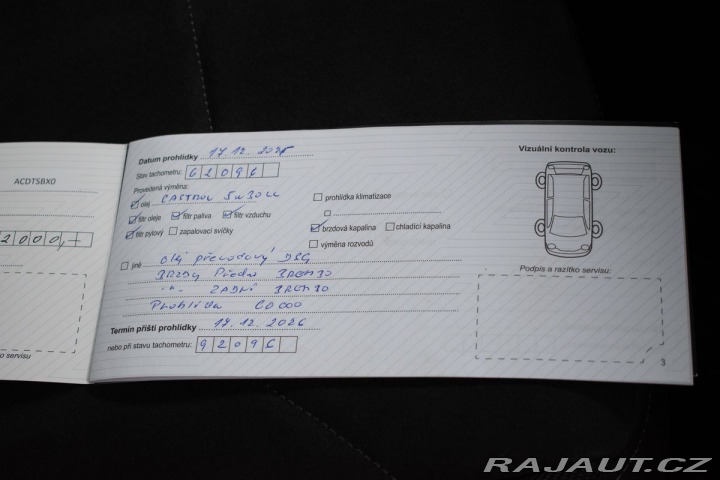 ACDTSBX0
2000,-
o servisu
Datum prohlídky 17.12.2025
Stav tachometru: 62096
Provedená výměna:
olej CASTROL 5W30LL
filtr oleje filtr paliva filtr vzduchu
filtr pylový zapalovací svíčky
prohlídka klimatizace
brzdová kapalina chladící kapalina
výměna rozvodů
jiné olej převodový DSG
BRZDY Přední BREMBO
-"- ZADNÍ BREMBO
Prohlídka 60 000
Termín příští prohlídky 17.12.2026
nebo při stavu tachometru: 92096
Vizuální kontrola vozu:
Podpis a razítko servisu:
3
RAJAUT.CZ